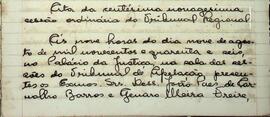 Ata da centésima nonagesima
sessão ordinária do Tribunal Regional
Ás nove horas do dia nove de agos-
to de mil novecentos e quarenta e seis,
no Palácio da Justiça, na sala das ses-
sões do Tribunal de Apelação, presen-
tes os Exmos. Srs. Des. João Paes de Car-
valho Barros e Genaro Freire,